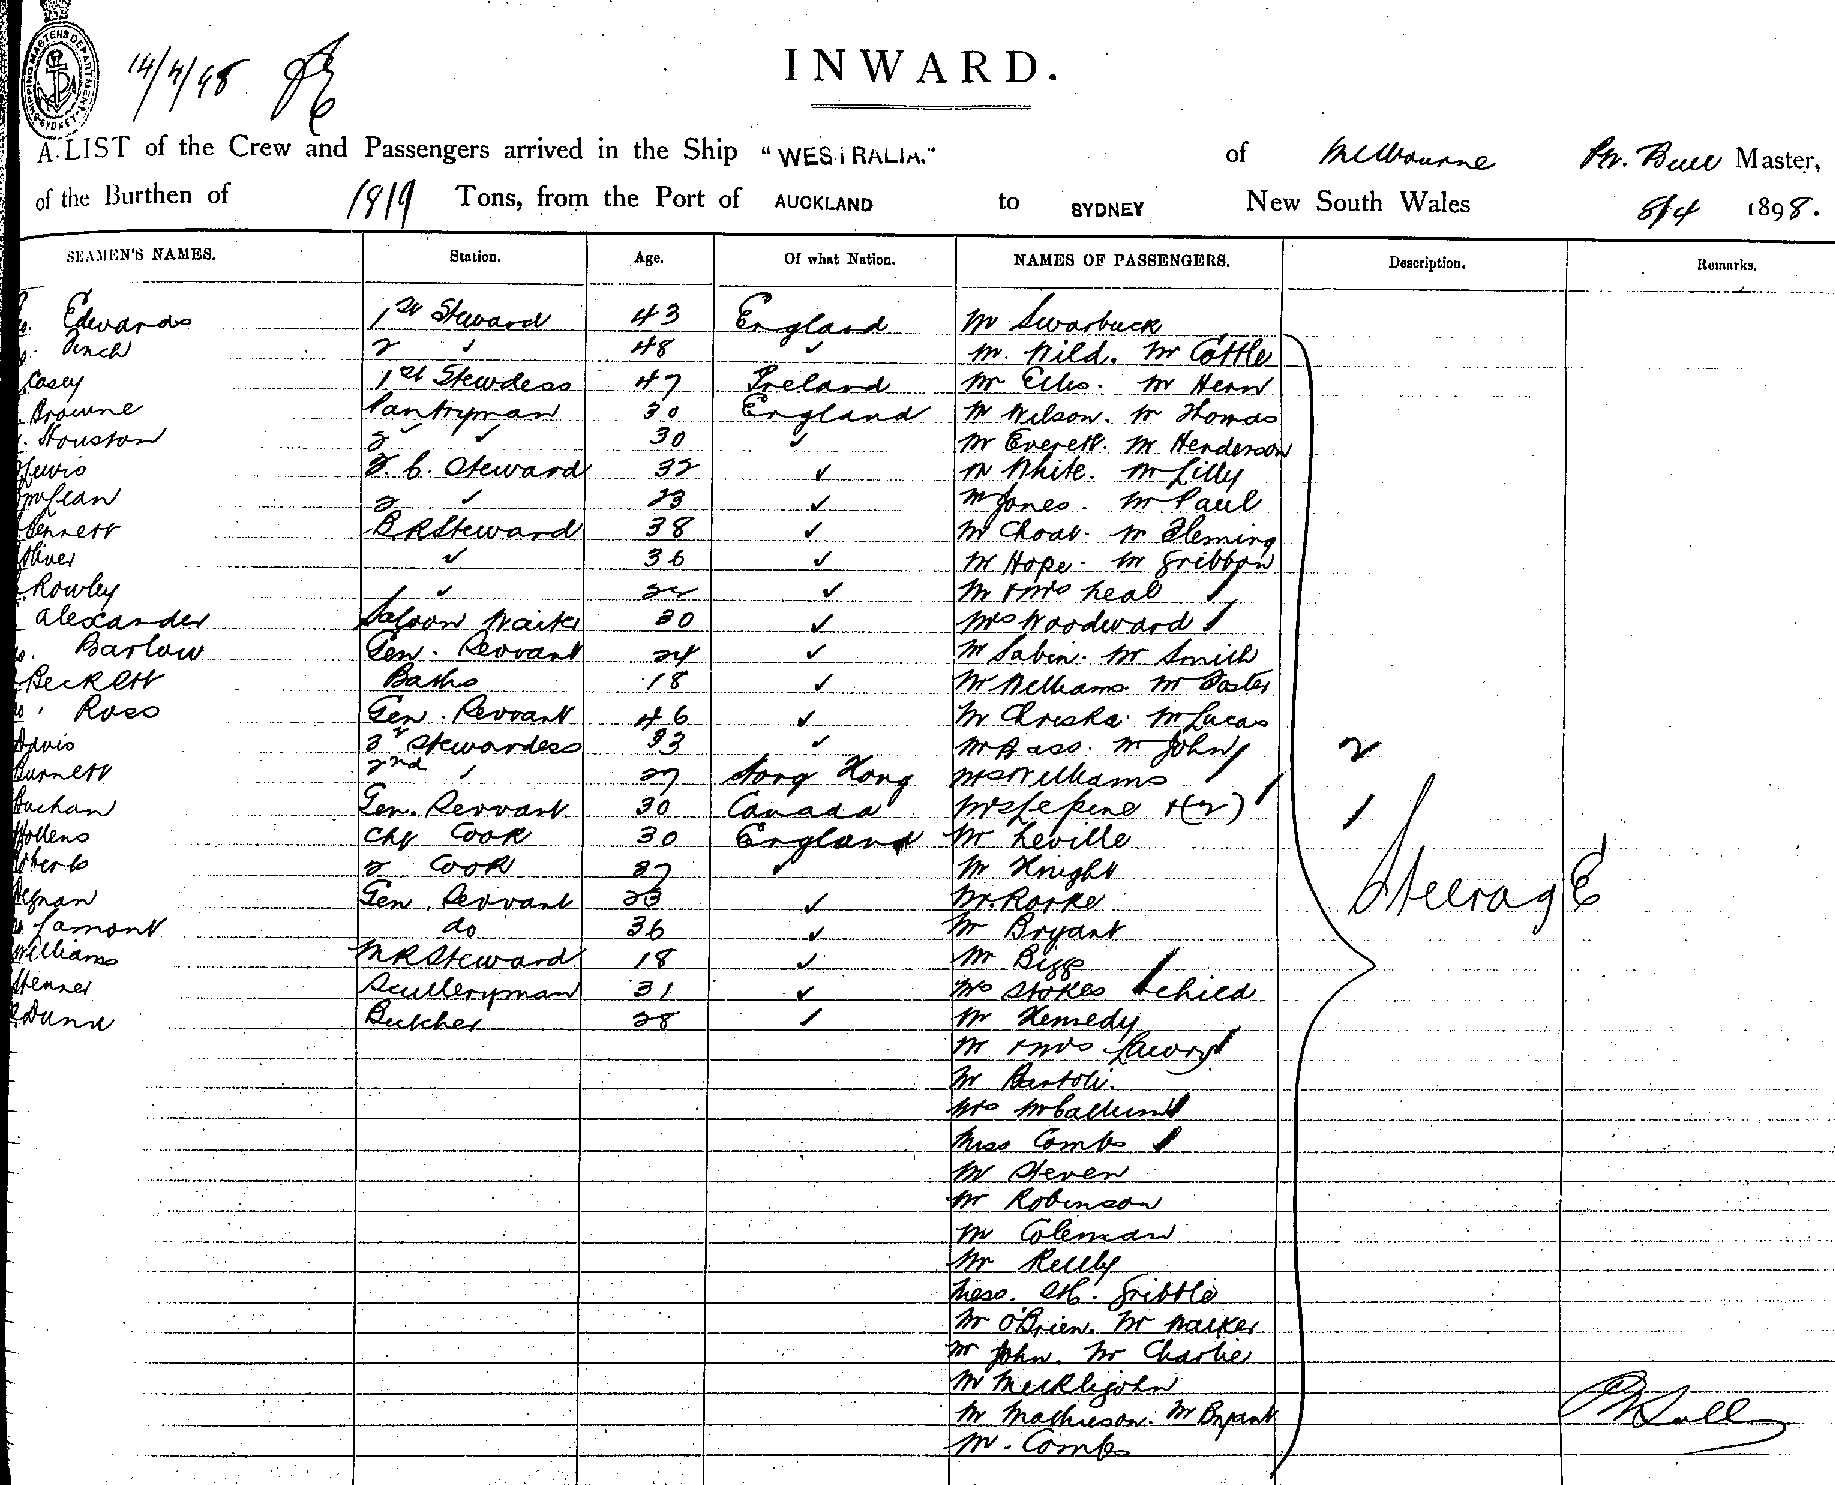 SHIPPING MASTERS DEPARTMENT SYDNEY
14/4/98
INWARD.
A LIST of the Crew and Passengers arrived in the Ship "WESTRALIA." of Melbourne Master,
of the Burthen of 1819 Tons, from the Port of AUCKLAND to SYDNEY New South Wales 8/4 1898.
SEAMEN'S NAMES. Station. Age. Of what Nation. NAMES OF PASSENGERS. Description. Remarks.
Edwards 1st Steward 43 England Mr Swarbuck
Finch 2 ✓ 48 ✓ Mr. Wild. Mr Cottle
Casey 1st Stewdess 47 Ireland Mr Ellis. Mr Henn
Browne Pantryman 30 England Mr Wilson. Mr Thomas
Houston 2 ✓ 30 ✓ Mr Everett. Mr Henderson
Lewis Steward 32 ✓ Mr White. Mr Lilly
McLean 2 ✓ 23 ✓ Mr Jones. Mr Paul
Bennett B R Steward 38 ✓ Mr Choat. Mr Fleming
Oliver ✓ 36 ✓ Mr Hope. Mr Gribbon
Rowley ✓ 22 ✓ Mr & Mrs Neal
Alexander Saloon Waiter 30 ✓ Mrs Woodward
Barlow Gen. Servant 24 ✓ Mr Sabin. Mr Smith
Beckett Baths 18 ✓ Mr Williams. Mr Foster
Ross Gen. Servant 46 ✓ Mr Mr Lucas
Davis Stewardess 33 ✓ Mr Bass. Mr John 2
Burnett 2nd ✓ 27 Hong Kong Mrs Williams
Buchan Gen. Servant 30 Canada Mrs Lepine &(2) 1
Hollens Chf Cook 30 England Mr Neville
Roberts 2 Cook 27 ✓ Mr Knight
Gen. Servant 23 ✓ Mr. Rorke Steerage
Lamont do 36 ✓ Mr Bryant
Williams M R Steward 18 ✓ Mr Bigg
Henner Sculleryman 31 ✓ Mrs Stokes 1 child
Dunn Butcher 28 Mr Kennedy
Mr & Mrs Lawry
Mr Bartoli.
Mrs McCallum
Miss Combs
Mr Steven
Mr Robinson
Mr Coleman
Mr Reilly
Mess. Gribble
Mr O'Brien. Mr Walker
Mr John. Mr Charlie
Mr Meiklejohn
Mr Mathieson. Mr Bryant
Mr. Combs